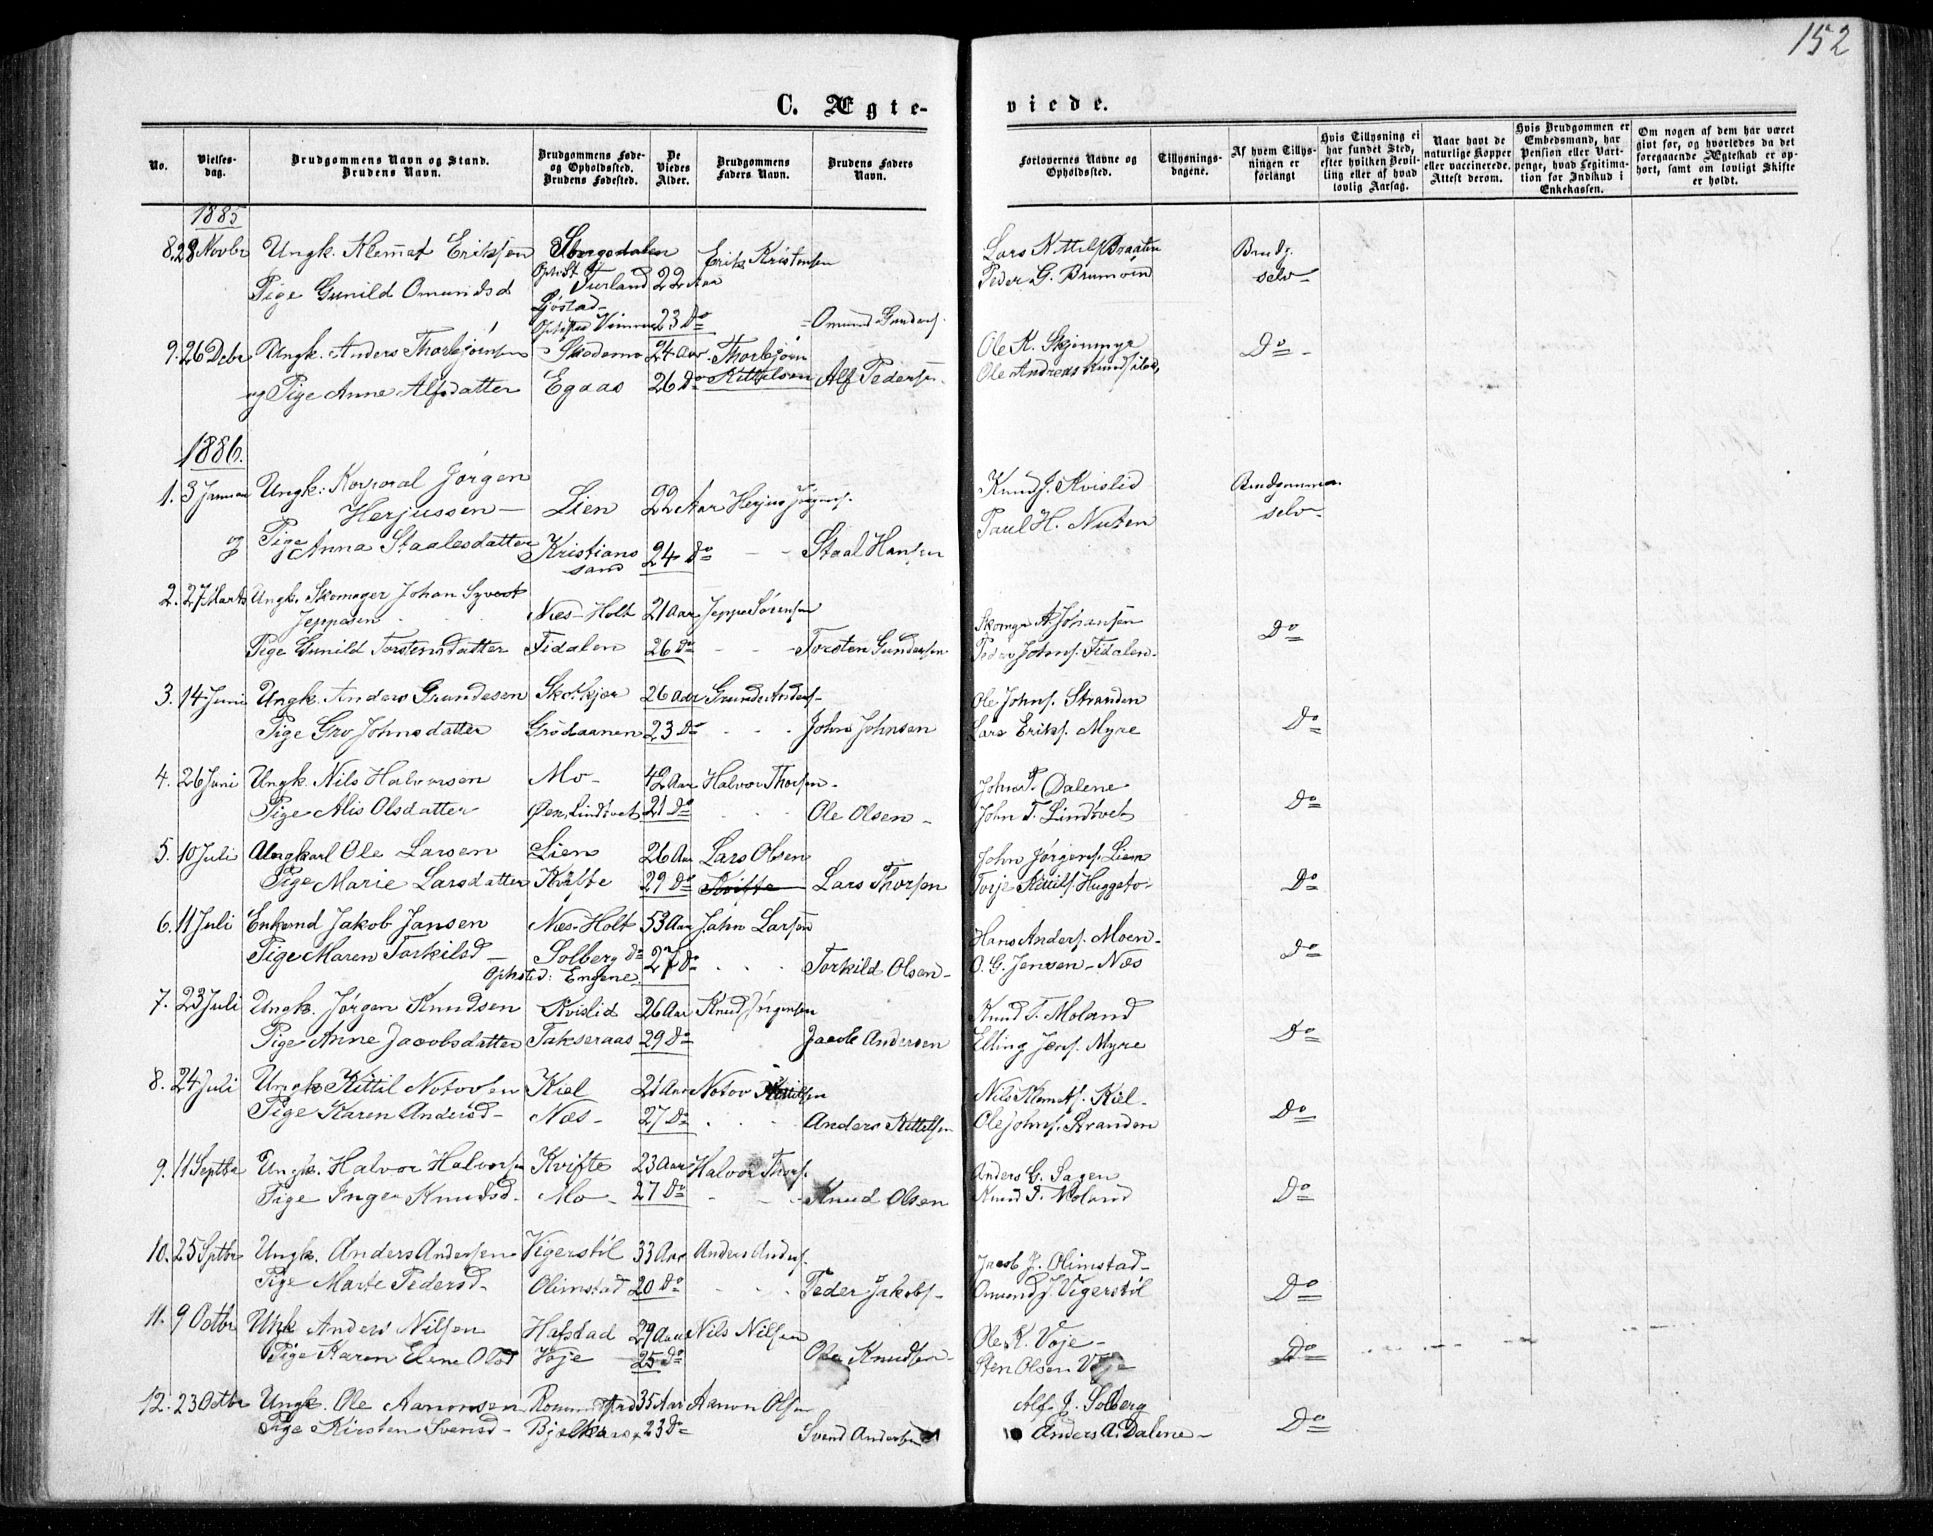 152
C. Ægte-
viede.
No.
Vielses-
dag.
Brudgommens Navn og Stand.
Brudens Navn.
Brudgommens Føde-
og Opholdssted.
Brudens Fødested.
De
Viedes
Alder.
Brudgommens
Faders Navn.
Brudens Faders
Navn.
Forlovernes Navne og
Opholdssted.
Tillysnings-
dagene.
Af hvem Tillys-
ningen er
forlangt
Hvis Tillysning ei
har fundet Sted,
efter hvilken Bevil-
ling eller af hvad
lovlig Aarsag.
Naar havt de
naturlige Kopper
eller vaccinerede.
Attest derom.
Hvis Brudgommen er
Embedsmand, har
Pension eller Vart-
penge, hvad Legitima-
tion for Indskud i
Enkekassen.
Om nogen af dem har været
givt før, og hvorledes da det
foregaaende Ægteskab er op-
hørt, samt om lovligt Skifte
er holdt.
1885
8. 28 Novbr Ungk. Klemmet Eriksen Songedalen Erik Kristensen Lars Kittelsen Braaten Brudg.
Furland 22 Aar Peder G. Brumoen selv
Pige Gunild Omundsd
23 Do Omund Gunders.
9. 26 Debr Ungk. Anders Thorbjørnsen Skademo 24 Aar Thorbjørn Ole K. Skjenmyr Do
Kittelsen Ole Andreas
og Pige Anne Alfsdatter Egaas 26 Do Alf Pedersen
1886.
1. 3 Januar Ungk: Korporal Jørgen Knud J. Kvislid Brudgommen
Herjussen Lien 22 Aar Herjus Jørgens. Paul H. Nuten selv
og Pige Anna Staalesdatter Kristians 24 Do Staal Hansen
sand
2. 27 Marts Ungk. Skomager Johan Syvert
Jeppesen Næs-Holt 21 Aar Jeppe Sørensen Skomgr A Johansen Do
Pige Gunild Torstensdatter Fidalen 26 Do Torsten Gundersen Peder Johns. Fidalen
3. 14 Juni Ungk. Anders Grundesen Skokkjær 26 Aar Grunde Anders. Ole Johns. Stranden
Pige Gro Johnsdatter Grødaanen 23 Do John Johnsen Lars Eriks. Myre Do
4. 26 Juni Ungk. Nils Halvorsen Mo 42 Aar Halvor Thorsen John T. Dalene
Pige Alis Olsdatter Øen, Lindtvet 21 Do Ole Olsen John T. Lindtvet Do
5. 10 Juli Ungkarl Ole Larsen Lien 26 Aar Lars Olsen John Jørgens. Lien
Pige Marie Larsdatter Kvifte 29 Do Kvifte Lars Thorsen Torje Kittils. Huggeto Do
6. 11 Juli Enkemd Jakob Jansen Næs-Holt 53 Aar Jahn Larsen Hans Anders. Moen
Pige Maren Torkilsd Solberg Do 27 Do Torkild Olsen O. G. Jensen Næs Do
Ophsted: Engene
7. 23 Juli Ungk. Jørgen Knudsen Kvislid 26 Aar Knud Jørgensen Knud T. Moland
Pige Anne Jacobsdatter Takseraas 29 Do Jacob Andersen Elling Jens. Myre Do
8. 24 Juli Ungk Kittil Notovsen Kiel 21 Aar Notov Kittilsen Nils Klemts. Kiel
Pige Karen Andersd Næs 27 Do Anders Kittelsen Ole Johns. Stranden Do
9. 11 Septbr Ungk. Halvor Halvorsen Kvifte 23 Aar Halvor Thors. Anders G. Sagen
Pige Inger Knudsd. Mo 27 Do Knud Olsen Knud T. Moland Do
10. 25 Sptbr Ungk. Anders Andersen Vigerstøl 33 Aar Anders Anders. Jacob J. Olimstad
Pige Marte Pedersd Olimstad 20 Do Peder Jakobs Omund J. Vigerstøl Do
11. 9 Octbr Unk Anders Nilsen Hafstad 29 Aar Nils Nilsen Ole K. Voje
Pige Karen Elene Olsd Voje 25 Do Ole Knudsen Sten Olsen Voje Do
12. 23 Octbr Ungk. Ole Aanonsen 35 Aar Aanon Olsen Alf J. Solberg
Pige Kirsten Svensd Bjelkaros 23 Do Svend Andersen Anders A. Dalene Do